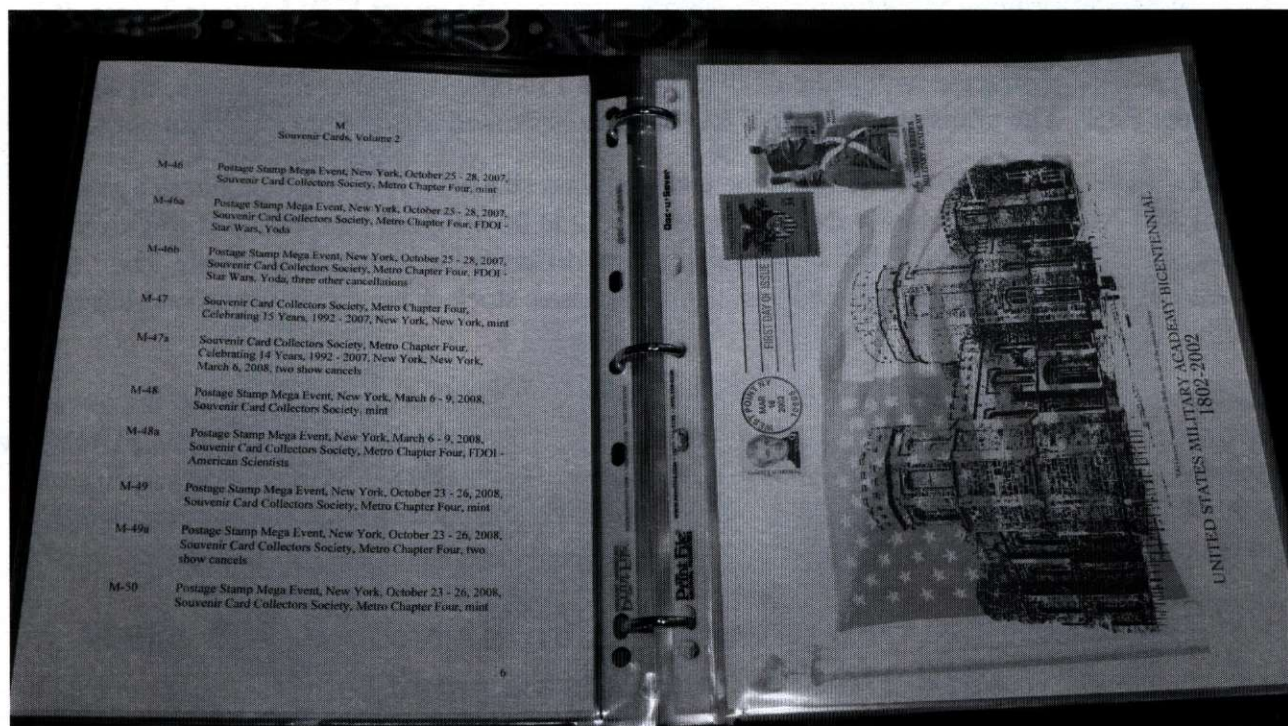 M
Souvenir Cards, Volume 2
M-46 Postage Stamp Mega Event, New York, October 25 - 28, 2007,
Souvenir Card Collectors Society, Metro Chapter Four, mint
M-46a Postage Stamp Mega Event, New York, October 25 - 28, 2007,
Souvenir Card Collectors Society, Metro Chapter Four, FDOI -
Star Wars, Yoda
M-46b Postage Stamp Mega Event, New York, October 25 - 28, 2007,
Souvenir Card Collectors Society, Metro Chapter Four, FDOI -
Star Wars, Yoda, three other cancellations
M-47 Souvenir Card Collectors Society, Metro Chapter Four,
Celebrating 15 Years, 1992 - 2007, New York, New York, mint
M-47a Souvenir Card Collectors Society, Metro Chapter Four,
Celebrating 14 Years, 1992 - 2007, New York, New York,
March 6, 2008, two show cancels
M-48 Postage Stamp Mega Event, New York, March 6 - 9, 2008,
Souvenir Card Collectors Society, mint
M-48a Postage Stamp Mega Event, New York, March 6 - 9, 2008,
Souvenir Card Collectors Society, Metro Chapter Four, FDOI -
American Scientists
M-49 Postage Stamp Mega Event, New York, October 23 - 26, 2008,
Souvenir Card Collectors Society, Metro Chapter Four, mint
M-49a Postage Stamp Mega Event, New York, October 23 - 26, 2008,
Souvenir Card Collectors Society, Metro Chapter Four, two
show cancels
M-50 Postage Stamp Mega Event, New York, October 23 - 26, 2008,
Souvenir Card Collectors Society, Metro Chapter Four, mint
6
Print File
MILITARY ACADEMY
FIRST DAY OF ISSUE
WEST POINT NY
MAR
16
2002
UNITED STATES MILITARY ACADEMY BICENTENNIAL
1802-2002